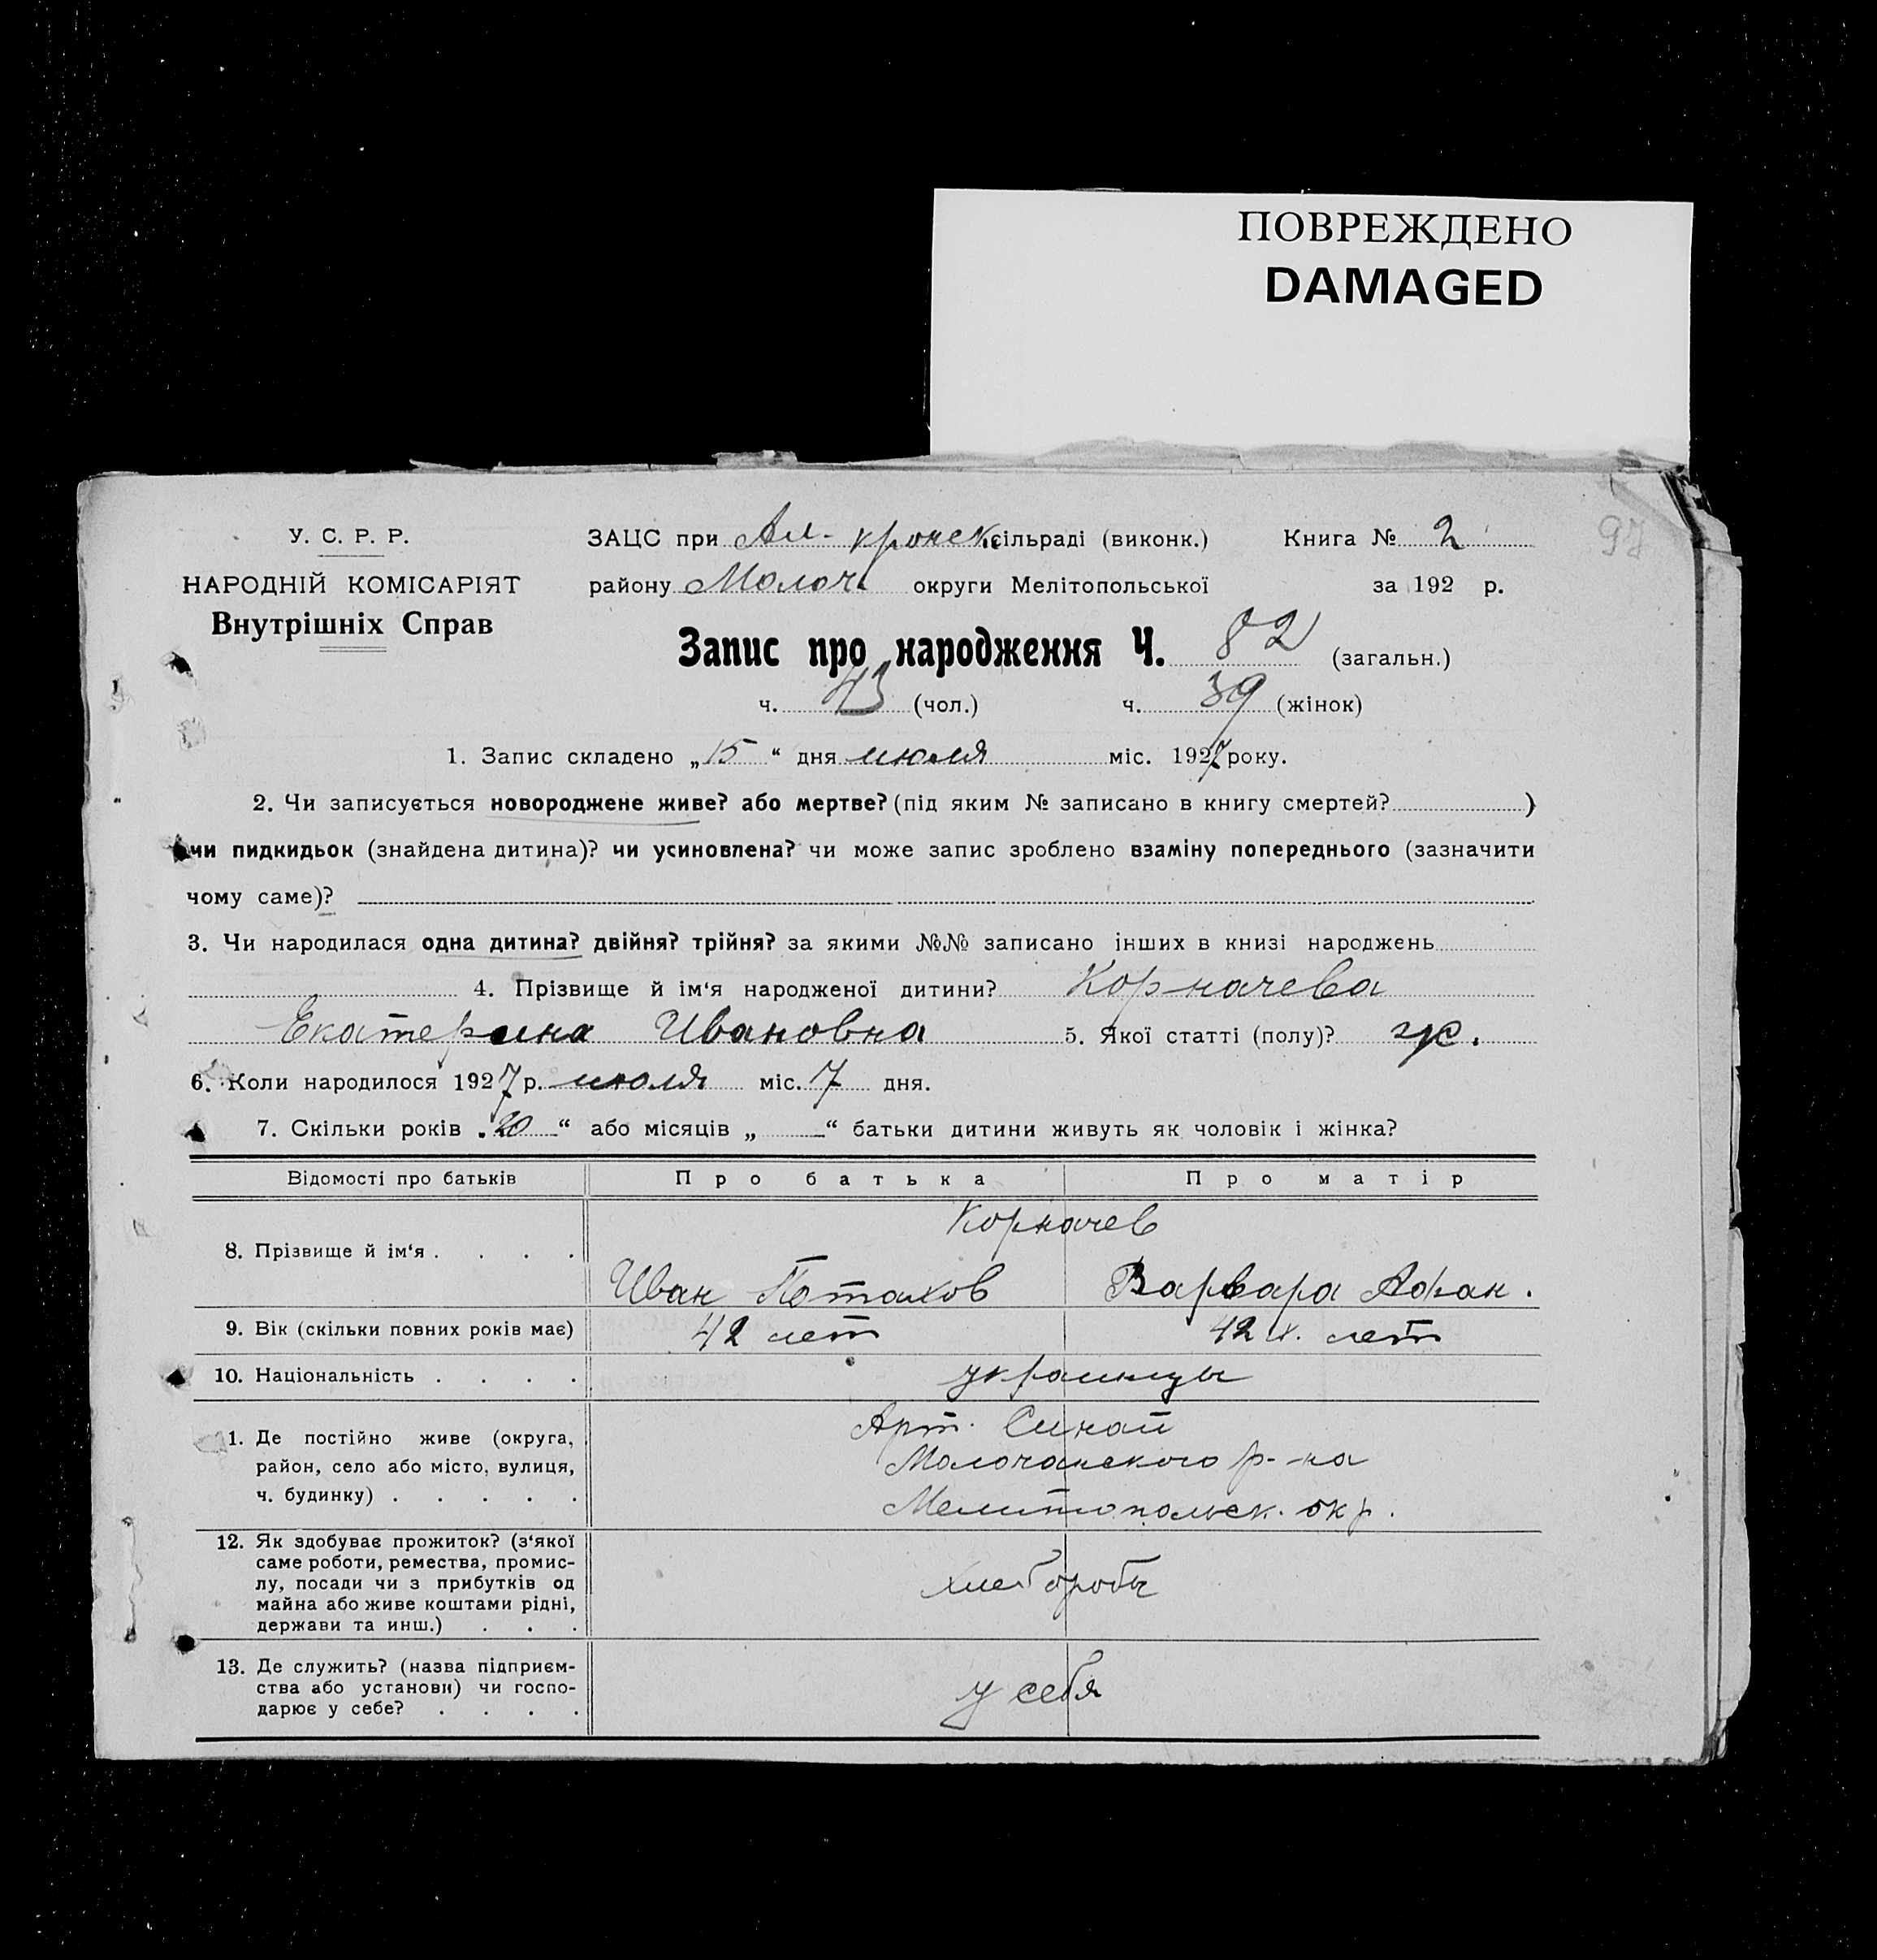 ПОВРЕЖДЕНО
DAMAGED
97
У. С. Р. Р.
НАРОДНІЙ КОМІСАРІЯТ
Внутрішніх Справ
ЗАЦС при Ал-кронск. сільраді (виконк.) Книга № 2
району Молоч. округи Мелітопольської за 192 р.
Запис про народження Ч. 82 (загальн.)
ч. 43 (чол.) ч. 39 (жінок)
1. Запис складено „15“ дня июля міс. 1927 року.
2. Чи записується новороджене живе? або мертве? (під яким № записано в книгу смертей? )
чи пидкидьок (знайдена дитина)? чи усиновлена? чи може запис зроблено взаміну попереднього (зазначити
чому саме)?
3. Чи народилася одна дитина? двійня? трійня? за якими №№ записано інших в книзі народжень
4. Прізвище й ім‘я народженої дитини? Корначева
Екатерина Ивановна 5. Якої статті (полу)? ж.
6. Коли народилося 1927 р. июля міс. 7 дня.
7. Скільки років „20“ або місяців „ “ батьки дитини живуть як чоловік і жінка?
Відомості про батьків Про батька Про матір
Корначев
8. Прізвище й ім‘я . . . .
Иван Потапов Варвара Афан.
9. Вік (скільки повних років має) 42 лет 42 лет
10. Національність . . . . украинцы
Арт. Синай
1. Де постійно живе (округа,
район, село або місто, вулиця,
ч. будинку) . . . . .
Молочанского р-на
Мелитопольск. окр.
12. Як здобуває прожиток? (з‘якої
саме роботи, ремества, промис-
лу, посади чи з прибутків од
майна або живе коштами рідні,
держави та инш.) . . .
хлеборобы
13. Де служить? (назва підприєм-
ства або установи) чи госпо-
дарює у себе? . . . .
у себя